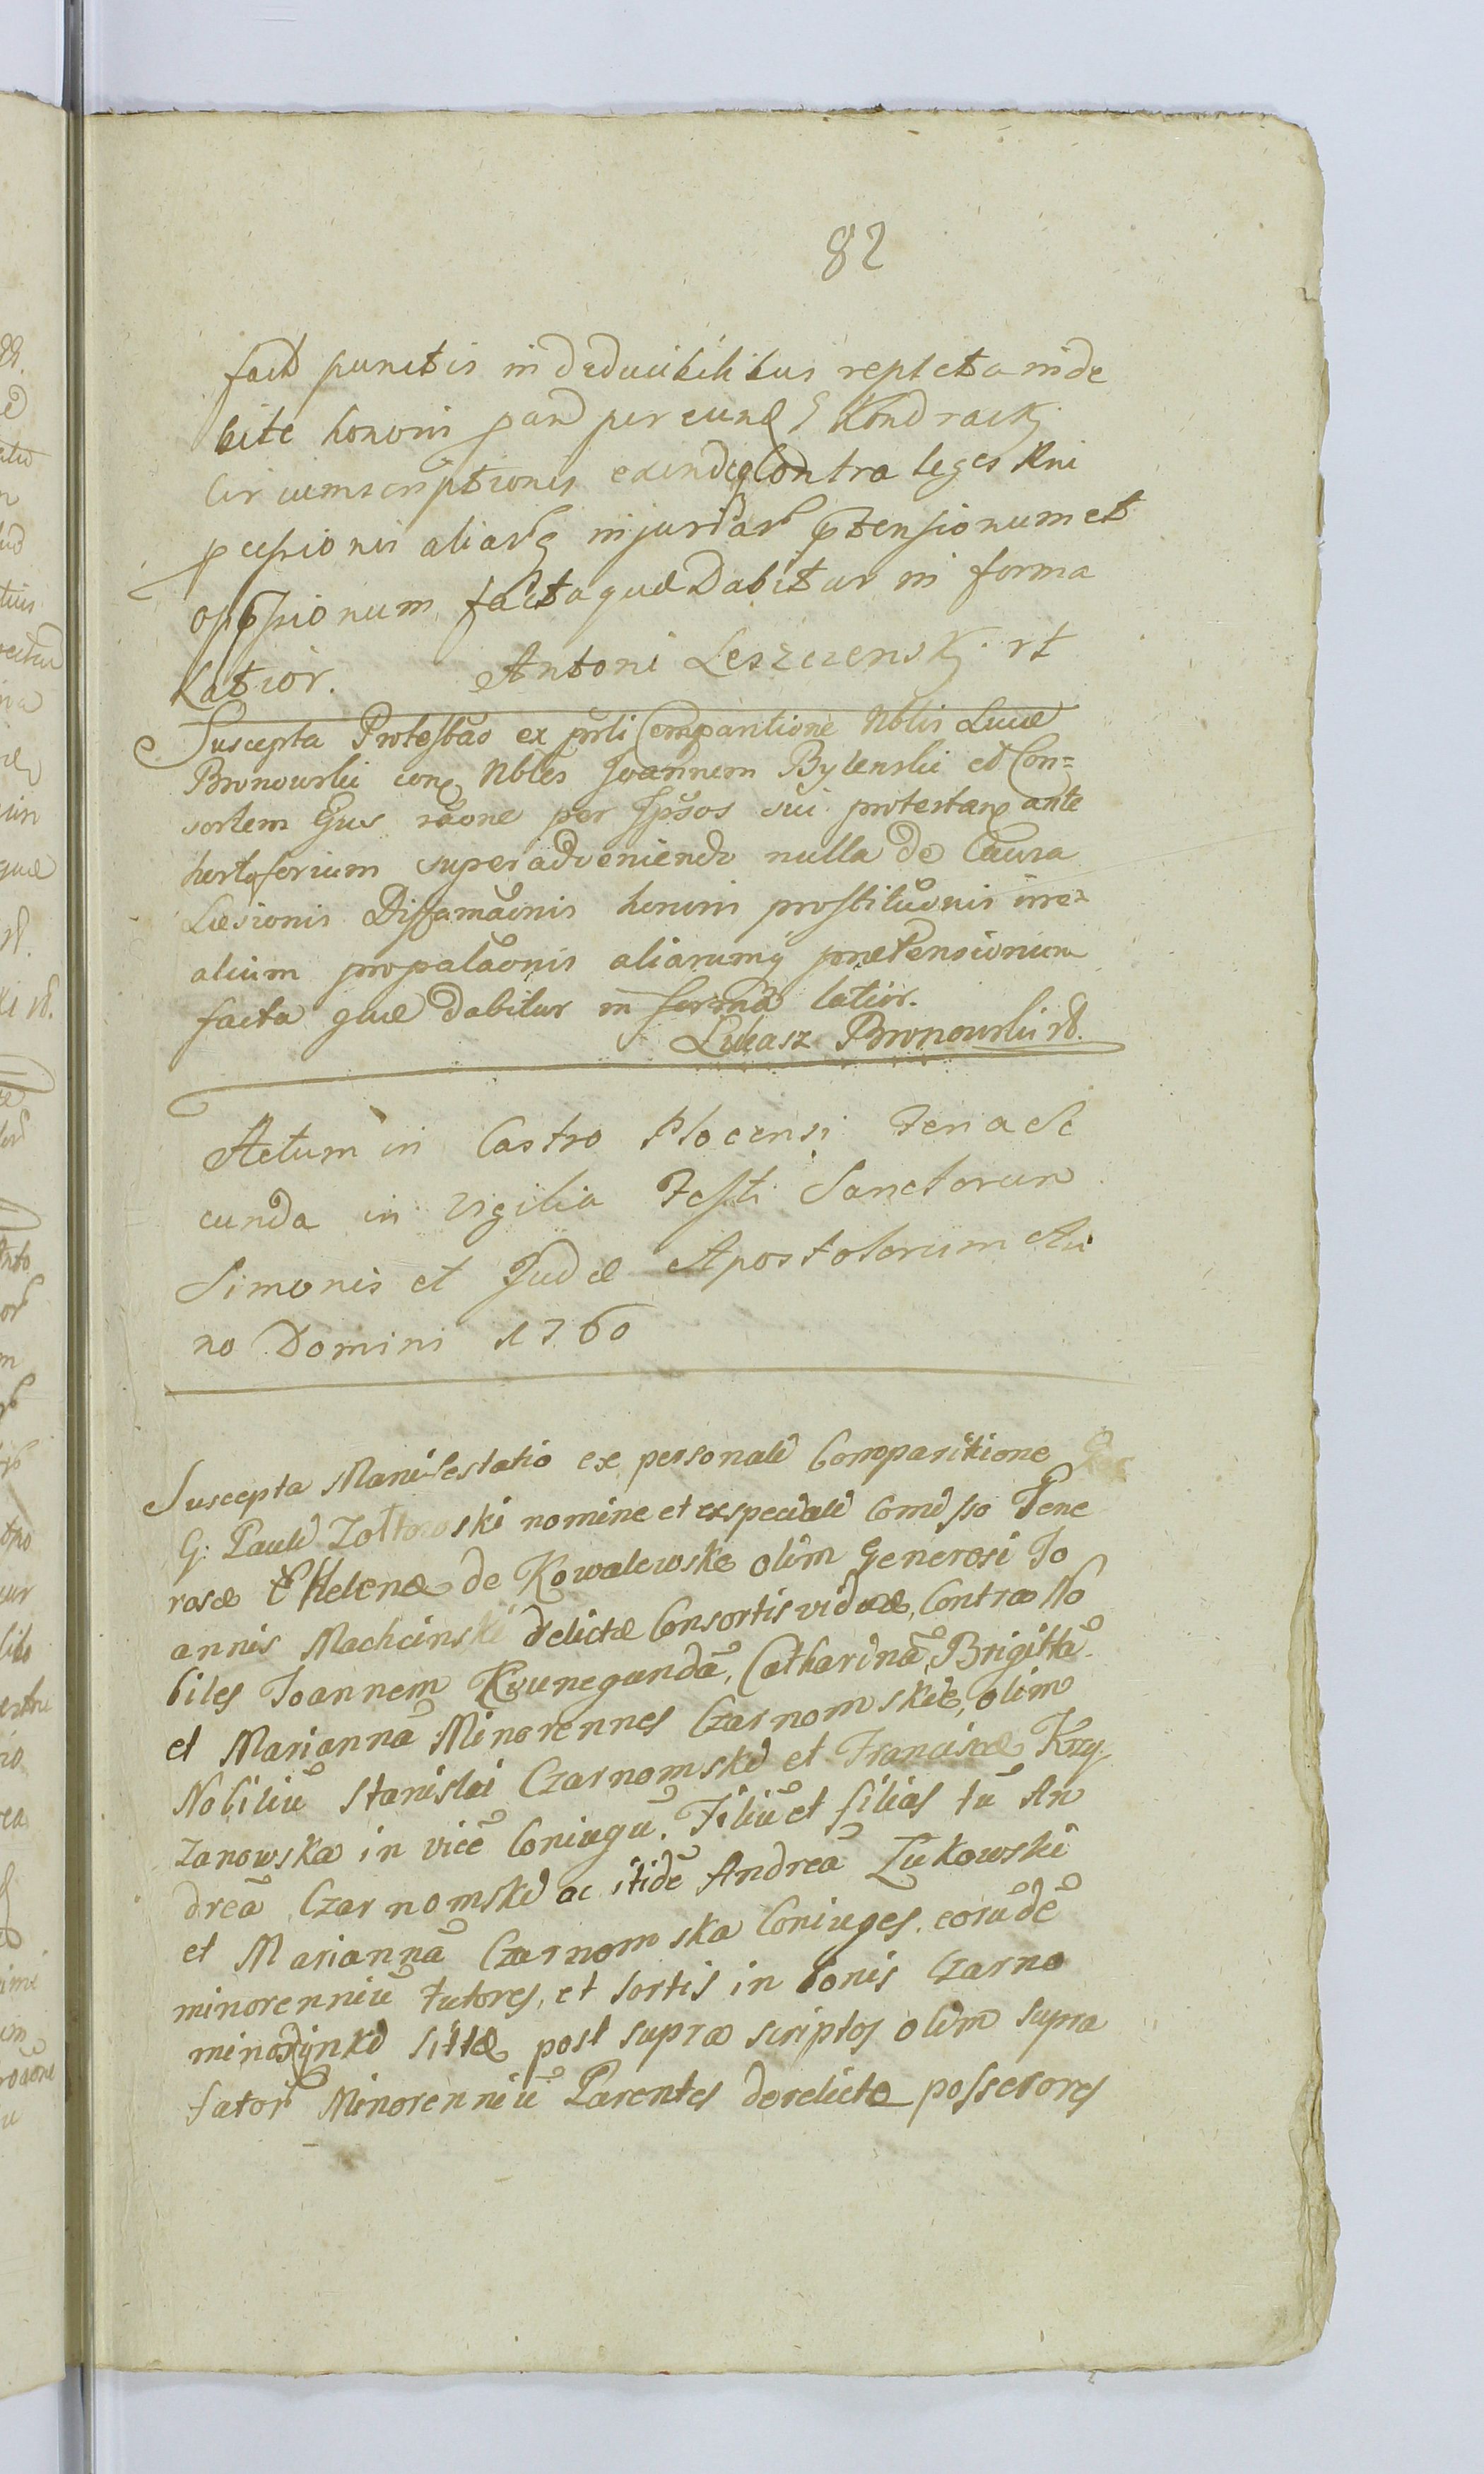 82
fact punctis in deducibilibus repleta inde
bite honori per eund Kondracki
Circumscriptionis exindeq Contra leges Rni
pcessionis aliarq injuriar ptensionum et
oppssionum facta quæ Dabitur in forma
Latior. Antoni Leszczenski rt
Suscepta Protestao ex prli Comparitione Nblis Lucæ
Bronowski con Nbles Joannem Bylenski et Con=
sortem Ejus raone per Ipsos sui protestan ante
hortoforium superadveniendo nulla de Causa
Læsionis Diffamaonis honoris prostituonis irre=
alium propalaonis aliarumq prætensionum
facta quæ Dabitur in forma latior.
Lukasz Bronowski rt.
Actum in Castro Plocensi Feria Se
cunda in Vigilia Festi Sanctorum
Simonis et Judæ Apostolorum An
no Domini 1760
Suscepta Manifestatio ex personali Comparitione
G: Pauli Zoltowski nomine et ex speciali Comisso Gene
rosæ Helenæ de Kowalewskie olim Generosi Jo
annis Machcinski delictæ Consortis viduæ, Contra No
biles Joannem Kunegundā, Catharinā, Brigittā
et Mariannā Minorennes Czarnomskie, olim
Nobiliū Stanislai Czarnomski et Franciscæ Krzy
zanowska in vicē Coniugū. Filiū et filias tū An
dreā Czarnomski ac itidē Andreā Zukowski
et Mariannā Czarnomska Coniuges, eorūdē
minorenniū tutores, et sortis in bonis Czarno
minorzynki sittæ post supra scriptos olim supra
fator Minorenniū Parentes derelicta possesores